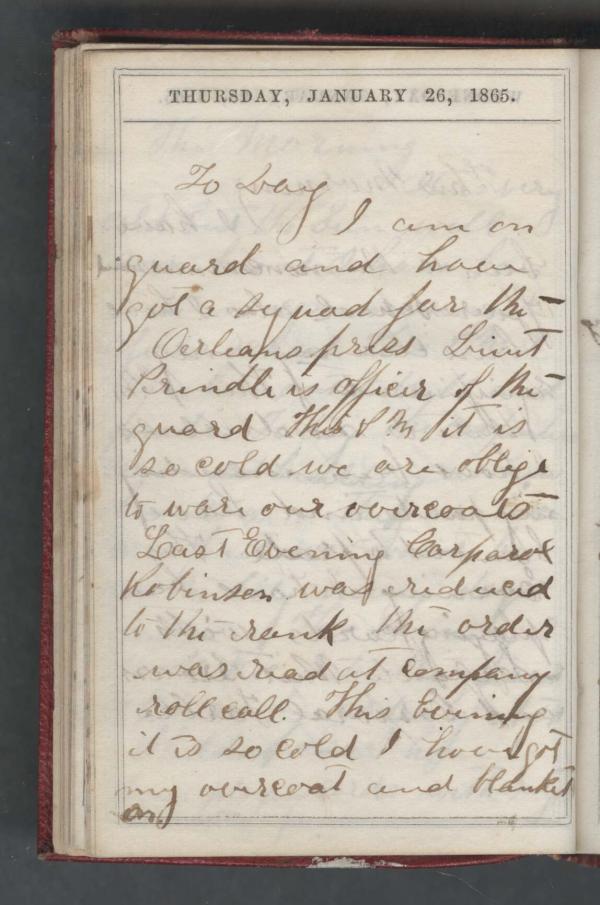 THURSDAY, JANUARY 26, 1865.
To Day
I am on
guard and have
got a squad for the
Oerleans press Liut
Prindle is officer of the
guard This P M it is
so cold we are oblige
to ware our overcoats
Last Evening Corparol
Robinson was reduced
to the rank the order
was read at company
roll call. This Evening
it is so cold I have got
my overcoat and blanket
on